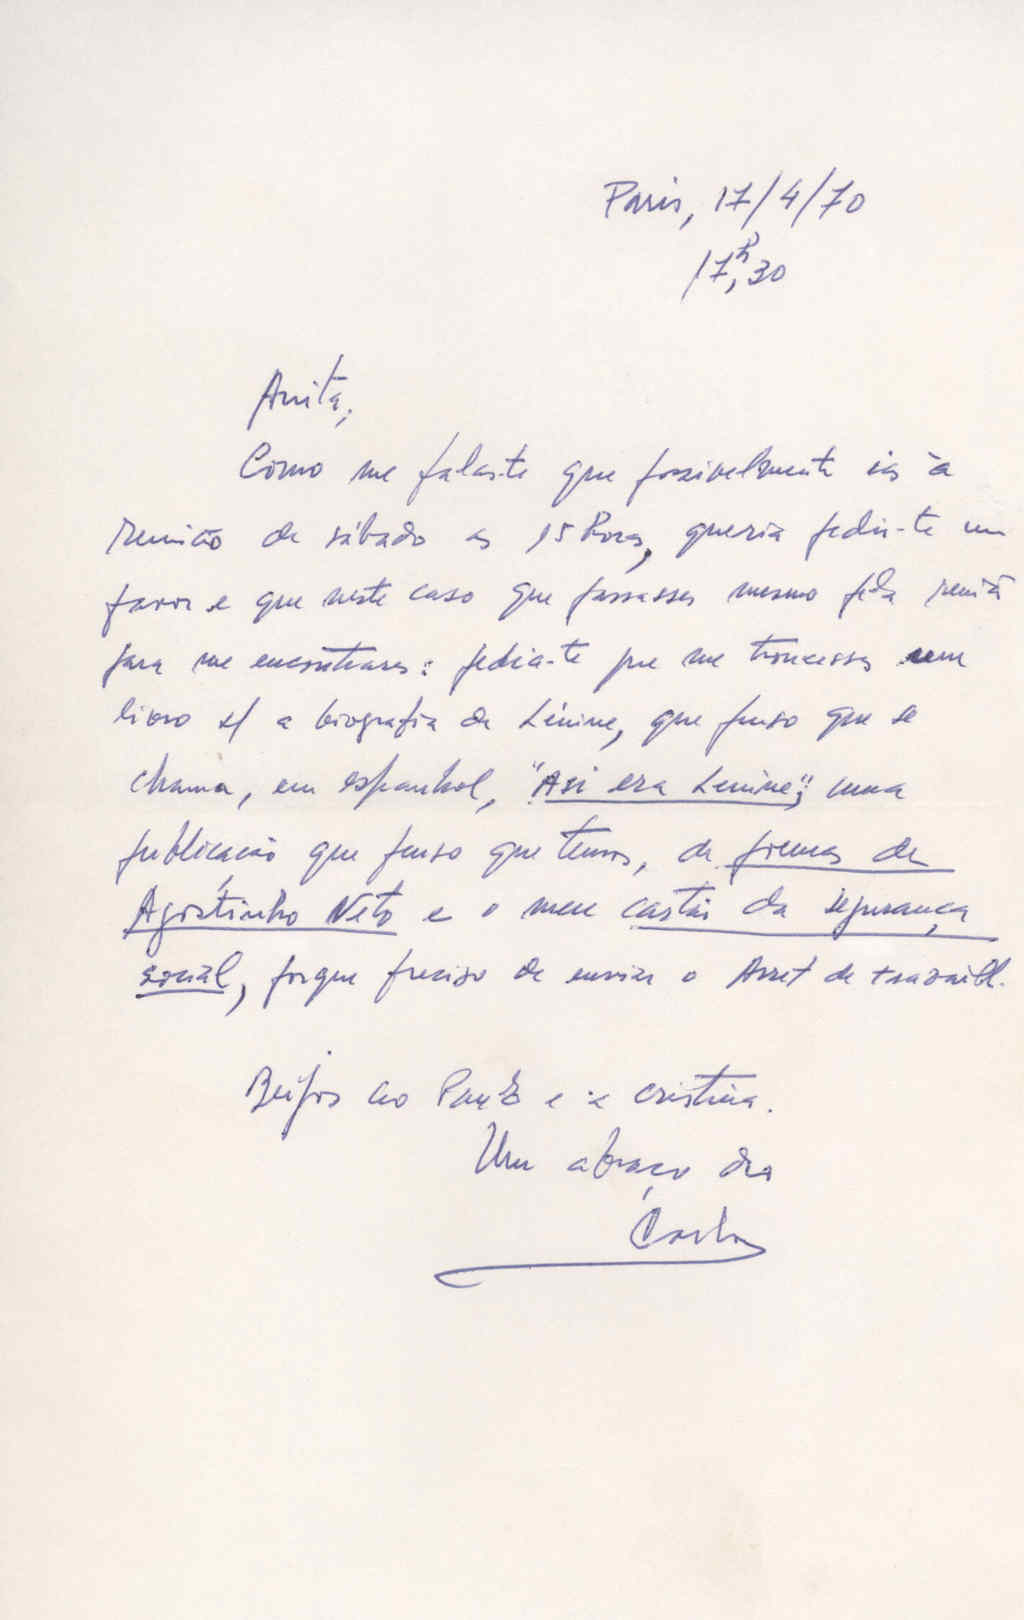 Paris, 17/4/70
17h,30
Anita,
Como me falaste que possivelmente ias à
reunião de sábado as 15 horas, queria pedir-te um
favor e que neste caso que passasses mesmo pela reunião
para me encontrares: pedia-te que me trouxesses um
livro s/ a biografia de Lénine, que penso que se
chama, em espanhol, "Asi era Lenine"; uma
publicação que penso que temos, de poemas de
Agostinho Neto e o meu cartão da segurança
social, porque preciso de enviar o Arret de travaill.
Beijos ao Paulo e à Cristina.
Um abraço do
Carlos